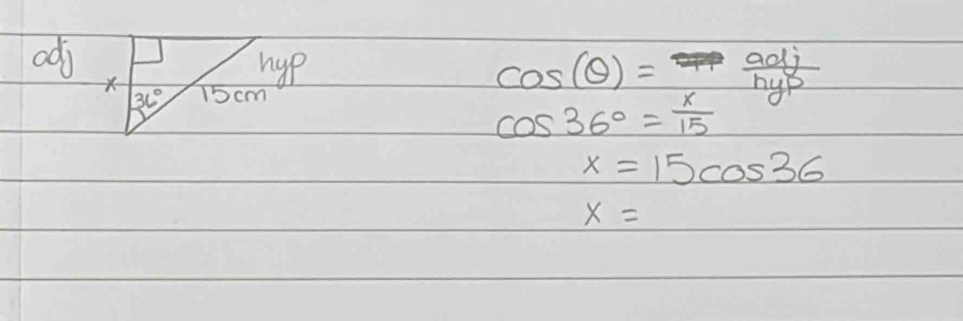 adj
hyp
x
36°
15cm
cos(θ) = adj/hyp
cos 36° = x/15
x = 15cos36
x =